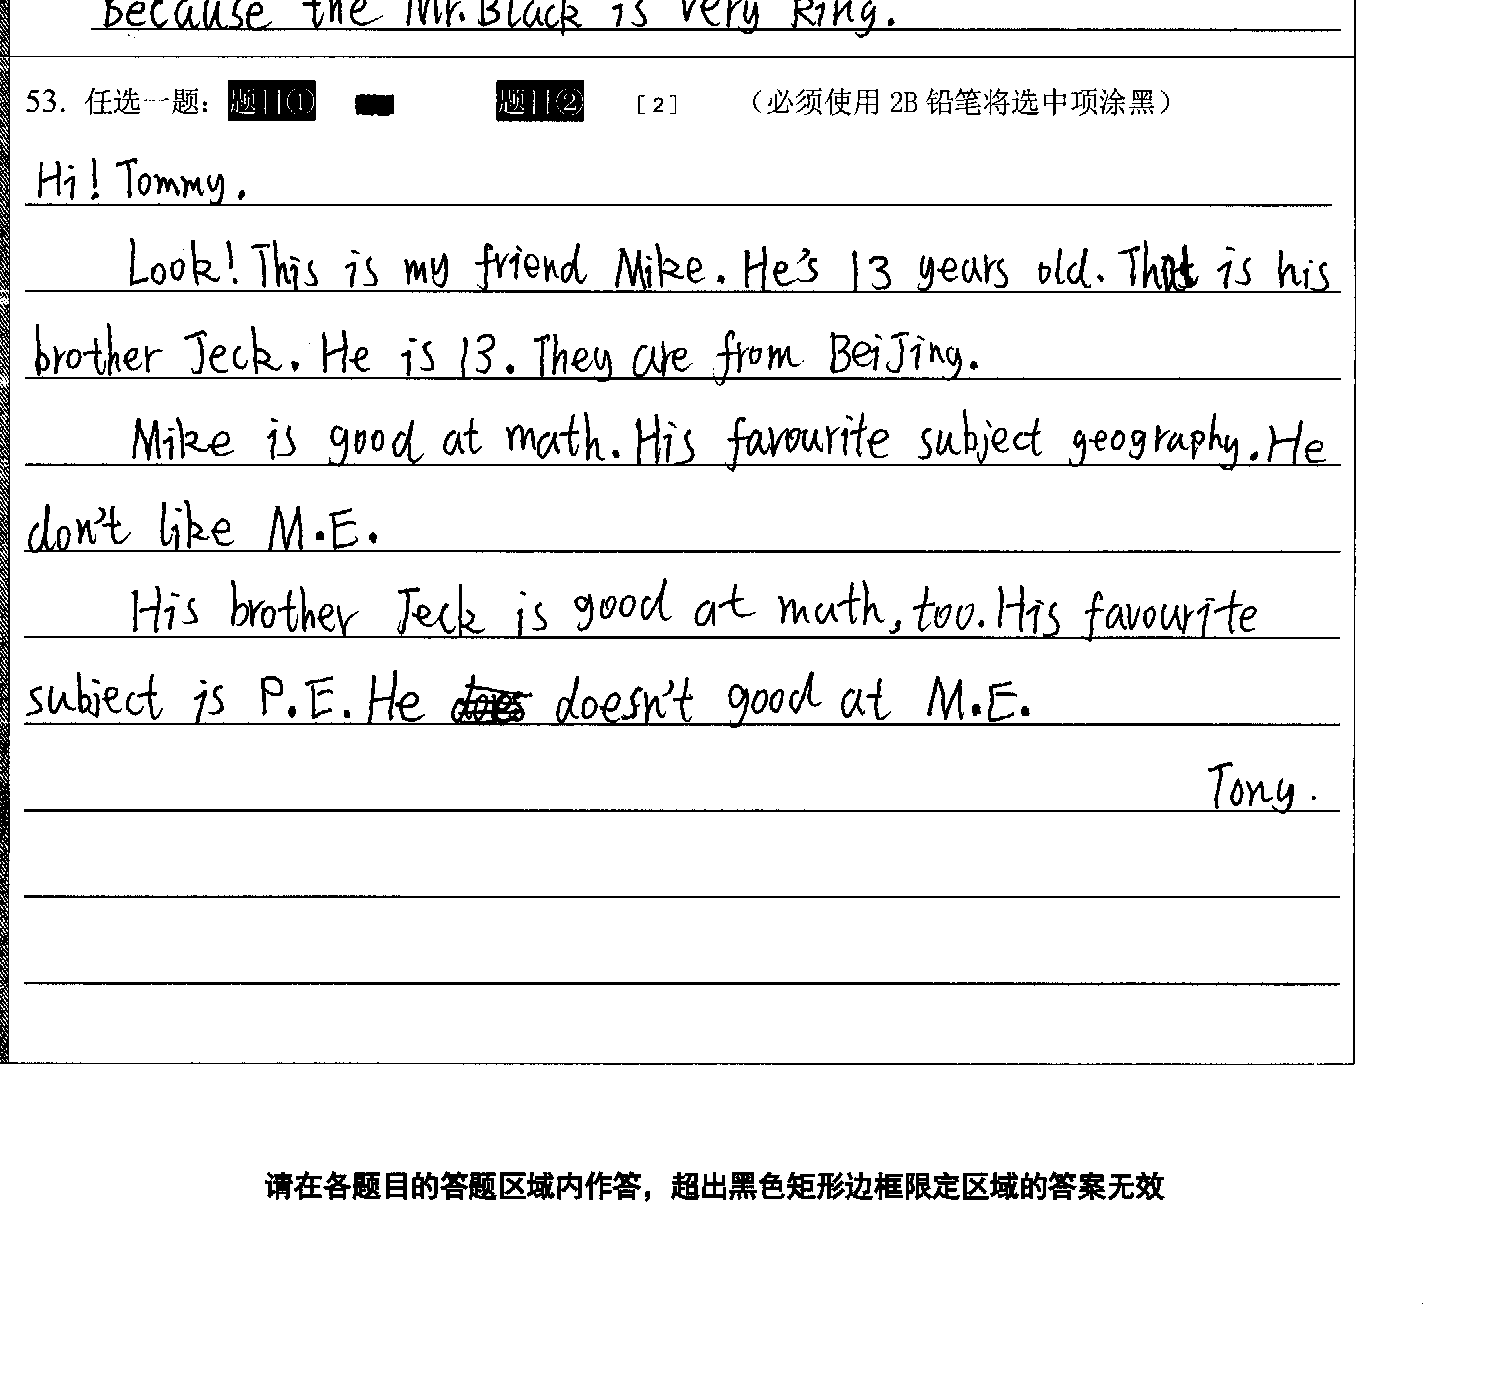 Because the Mr. Black is very king.
53. 任选一题: 题目① 题目② [2] (必须使用 2B 铅笔将选中项涂黑)
Hi! Tommy.
Look! This is my friend Mike. He's 13 years old. That is his
brother Jeck. He is 13. They are from BeiJing.
Mike is good at math. His favourite subject geography. He
don't like M.E.
His brother Jeck is good at math, too. His favourite
subject is P.E. He doesn't good at M.E.
Tony.
请在各题目的答题区域内作答，超出黑色矩形边框限定区域的答案无效